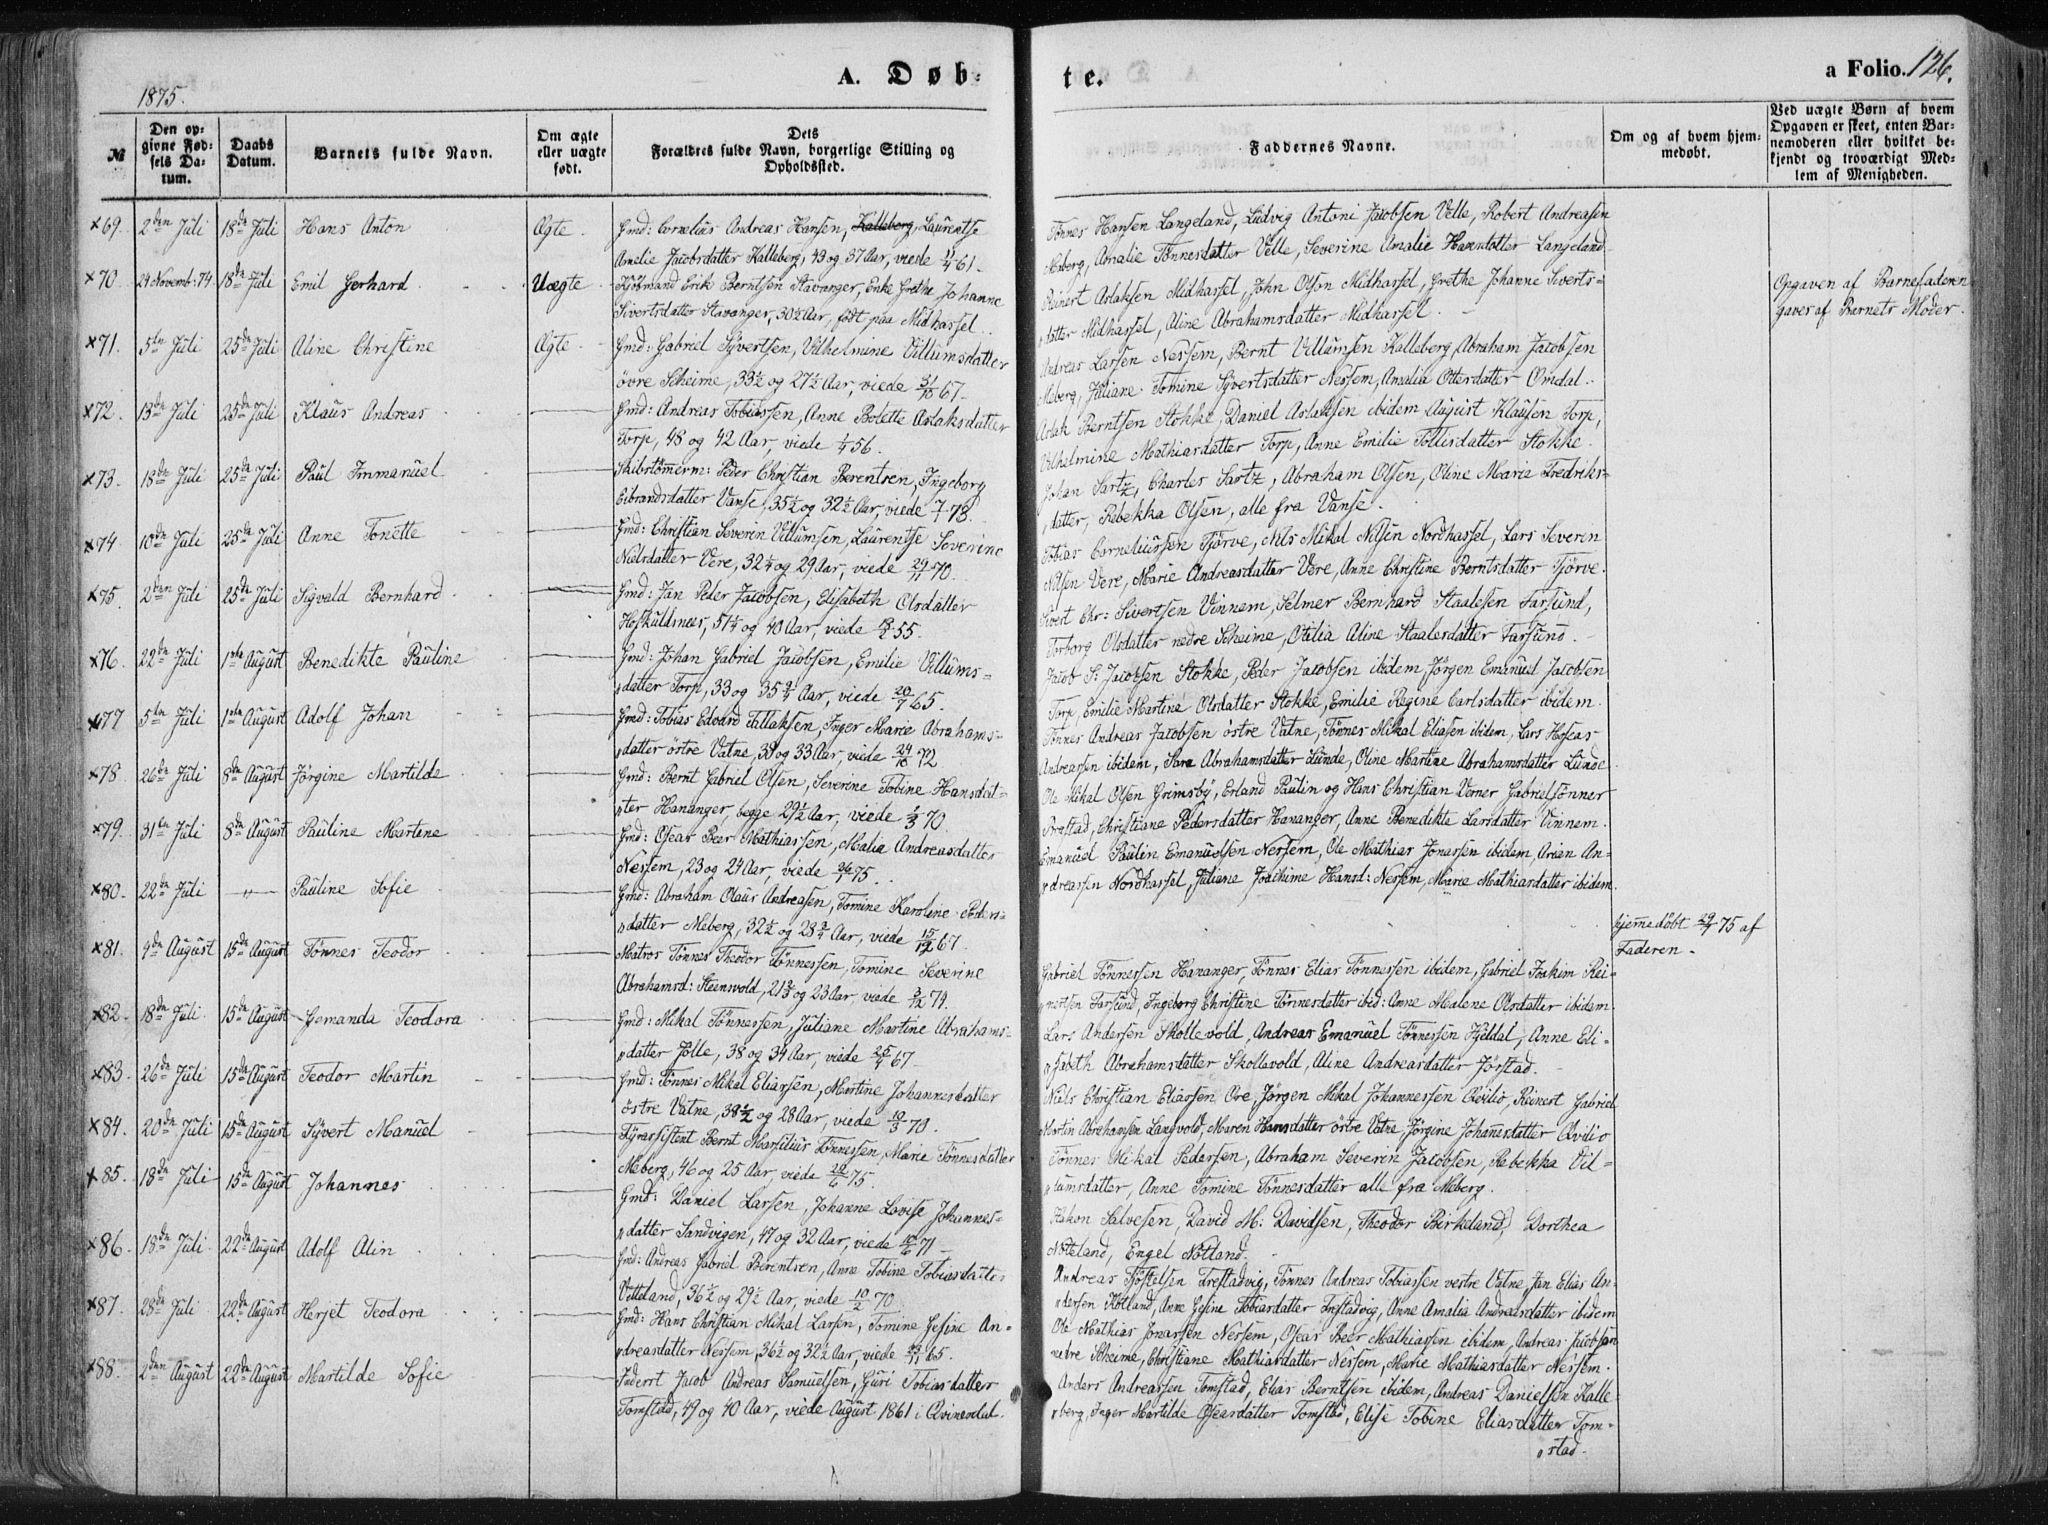 A. Døb=
te.
a Folio. 126.
1875.
№
Den op=
givne Fød=
sels Da=
tum.
Daabs
Datum.
Barnets fulde Navn.
Om ægte
eller uægte
født.
Dets
Forældres fulde Navn, borgerlige Stilling og
Opholdssted.
Faddernes Navne.
Om og af hvem hjem=
medøbt.
Ved uægte Børn af hvem
Opgaven er skeet, enten Bar=
nemoderen eller hvilket be=
kjendt og troværdigt Med=
lem af Menigheden.
×69. 2den Juli 18de Juli Hans Anton Ægte Gmd: Cornelius Andreas Hansen, Kalleberg, Laurentse
Amelie Jacobsdatter Kalleberg, 43 og 37 Aar, viede 61.
Tønnes Hansen Langeland, Ludvig Antoni Jacobsen Velle, Robert Andreasen
Meberg, Amalie Tønnesdatter Velle, Severine Amalie Hansdatter Langeland
×70. 24 Novemb: 74. 18de Juli Emil Gerhard Uægte Kjøbmand Erik Berntsen Stavanger, Enke Grethe Johanne
Sivertsdatter Stavanger, 30½ Aar, født paa Midhassel.
Reinert Aslaksen Midhassel, John Olson Midhassel, Grethe Johanne Siverts=
datter Midhassel, Aline Abrahamsdatter Midhassel.
Opgaven af Barnefaderen
gaves af Barnets Moder.
×71. 5te Juli 25de Juli Aline Christine Ægte Gmd: Gabriel Syvertsen, Vilhelmine Villumsdatter
øvre Scheime, 33½ og 27½ Aar, viede 31/10 67.
Andreas Larsen Nessem, Bernt Villumsen Kalleberg, Abraham Jacobsen
Meberg, Juliane Tomine Syvertsdatter Nessem, Amalia Otterdatter Omdal.
×72. 13de Juli 25de Juli Klaus Andreas Gmd: Andreas Tobiassen, Anne Bolette Aslaksdatter
Torp, 48 og 42 Aar, viede 56.
Aslak Berntsen Stokke, Daniel Aslaksen ibidem, August Klausen Torp,
Vilhelmine Mathiasdatter Torp, Anne Emilie Tollisdatter Stokke.
×73. 18de Juli 25de Juli Paul Immanuel Skibstømmerm: Peder Christian Berentsen, Ingeborg
Eibrandsdatter Vanse, 35½ og 32½ Aar, viede 73.
Johan Sartz, Charles Sartz, Abraham Olsen, Oline Marie Fredriks=
datter, Rebekka Olsen, alle fra Vanse.
×74. 10de Juli 25de Juli Anne Tonette Gmd: Christian Severin Villumsen, Laurentse Severine
Nielsdatter Vere, 32½ og 29 Aar, viede 29/11 70.
Tobias Corneliussen Tjørve, Nils Mikal Nilsen Nordhassel, Lars Severin
Nilsen Vere, Marie Andreasdatter Vere, Anne Christine Berntsdatter Tjørve.
×75. 2den Juli 25de Juli Sigvald Bernhard Gmd: Jan Peder Jacobsen, Elisabeth Olsdatter
Hoskuldsnæs, 51¼ og 40 Aar, viede 55.
Sivert Chr: Sivertsen Vinnem, Selmer Bernhard Staalesen Farsund,
Torborg Olsdatter nedre Scheime, Otilia Aline Staalesdatter Farsund.
×76. 22de Juli 1ste August Benedikte Pauline Gmd: Johan Gabriel Jacobsen, Emilie Villums=
datter Torp, 33 og 35¾ Aar, viede 20/7 65.
Jacob S: Jacobsen Stokke, Peder Jacobsen ibidem, Jørgen Emanuel Jacobsen
Torp, Emilie Martine Olsdatter Stokke, Emilie Regine Carlsdatter ibidem.
×77 5te Juli 1ste August Adolf Johan Gmd: Tobias Edvard Tallaksen, Inger Marie Abrahams=
datter østre Vatne, 39 og 33 Aar, viede 24/10 72
Tønnes Andreas Jacobsen østre Vatne, Tønnes Mikal Eliasen ibidem, Lars Hoseas
Andreassen ibidem, Sara Abrahamsdatter Lunde, Oline Martine Abrahamsdatter Lunde
×78. 26de Juli 8de August Jørgine Martilde Gmd: Bernt Gabriel Olsen, Severine Tobine Hansdat=
ter Hananger, begge 29½ Aar, viede 70.
Ole Mikal Olsen Grimsby, Erland Paulin og Hans Christian Verner Gabrielsønner
Præstad, Christiane Pedersdatter Hananger, Anne Benedikte Larsdatter Vinnem.
×79. 31te Juli 8de August Pauline Martene Gmd: Osear Beer Mathiassen, Malia Andreasdatter
Nessem, 23 og 24 Aar, viede 75.
Emanuel Paulin Emanuelsen Nessem, Ole Mathias Jonassen ibidem, Arian An=
dreassen Nordhassel, Juliane Joachime Hansd: Nessem, Marie Mathiasdatter ibidem.
×80. 22de Juli —"— Pauline Sofie Gmd: Abraham Olaus Andreasen, Tomine Karoline Peders=
datter Meberg, 32½ og 28¾ Aar, viede 15/12 67.
hjemmedøbt 29/7 75 af
Faderen.
×81. 4de August 15de August Tønnes Teodor Matros Tønnes Theodor Tønnessen, Tomine Severine
Abrahamsd: Steenvold, 21⅔ og 23 Aar, viede 3/12 74.
Gabriel Tønnessen Hananger, Tønnes Elias Tønnessen ibidem, Gabriel Joakim Rei=
nertsen Farsund, Ingeborg Christine Tønnesdatter ibid: Anne Malene Olsdatter ibidem.
×82. 18de Juli 15de August Gemanda Teodora Gmd: Mikal Tønnessen, Juliane Martine Abrahams=
datter Jølle, 38 og 34 Aar, viede 25/4 67.
Lars Andersen Skollevold, Andreas Emanuel Tønnessen Hjeldal, Anne Eli=
sabeth Abrahamsdatter Skollavold, Aline Andreasdatter Jørstad.
×83. 26de Juli 15de August Teodor Martin Gmd: Tønnes Mikal Eliassen, Martine Johannesdatter
østre Vatne, 38½ og 28 Aar, viede 10/3 70.
Niels Christian Eliassen Ore, Jørgen Mikal Johannessen Qvilio, Reinert Gabriel
Martin Abrahamsen Langvold, Maren Hansdatter østre Vatne, Jørgine Johannesdatter Qvilio
×84. 20de Juli 15de August Syvert Manuel Fyrassistent Bernt Marsilius Tønnessen, Marie Tønnesdatter
Meberg, 46 og 25 Aar, viede 75.
Tønnes Mikal Pedersen, Abraham Severin Jacobsen, Rebekka Vil=
lumsdatter, Anne Tomine Tønnesdatter alle fra Meberg.
×85. 18de Juli 15de August Johannes Gmd: Daniel Larsen, Johanne Lovise Johannes=
datter Sandvigen, 47 og 32 Aar, viede 10/6 71.
Hakon Salvesen, David M: Davidsen, Theodor Birkeland, Dorthea
Nøteland, Engel Nøtland.
×86. 18de Juli 22de August Adolf Alin Gmd: Andreas Gabriel Berentsen, Anne Tobine Tobiasdatter
Vetteland, 36½ og 29½ Aar, viede 10/2 70.
Andreas Tjøstelsen Frestadvig, Tønnes Andreas Tobiassen vestre Vatne, Jan Elias An=
dersen Kotland, Anne Gesine Tobiasdatter Frestadvig, Anne Amalia Andreasdatter ibidem
×87. 28de Juli 22de August Herjet Teodora Gmd: Hans Christian Mikal Larsen, Tomine Gesine An=
dreasdatter Nessem, 36½ og 32½ Aar, viede 65.
Ole Mathias Jonassen Nessem, Osear Beer Mathiassen ibidem, Andreas Jacobsen
nedre Scheime, Christiane Mathiasdatter Nessem, Marie Mathiasdatter Nessem.
×88. 2den August 22de August Martilde Sofie Inderst Jacob Andreas Samuelsen, Guri Tobiasdatter
Tomstad, 49 og 40 Aar, viede August 1861 i Qvinesdal.
Anders Andreassen Tomstad, Elias Berntsen ibidem, Andreas Danielsen Kalle=
berg, Inger Martilde Osearsdatter Tomstad, Elise Tobine Eliasdatter Tom=
stad.